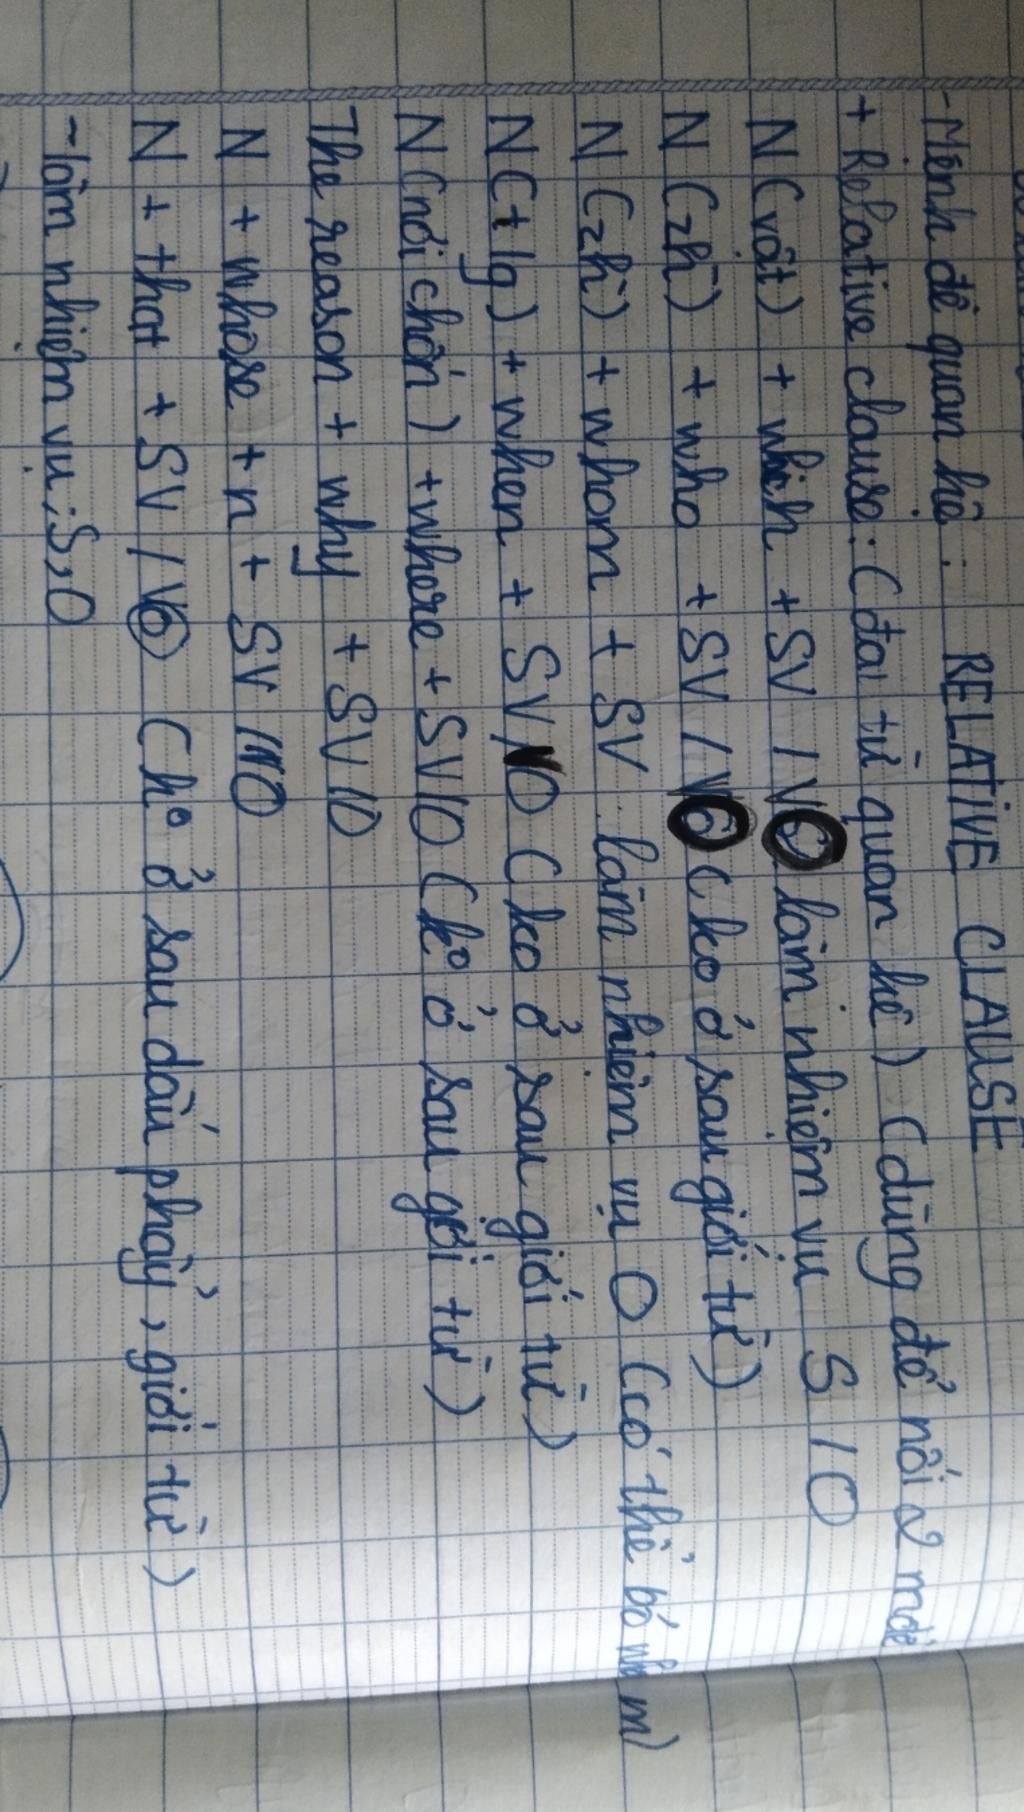 - Mệnh đề quan hệ : RELATIVE CLAUSE
+ Relative clause: (đại từ quan hệ) (dùng để nối 2 mđề
N (vật) + which + SV / VO làm nhiệm vụ S / O
N (ng) + who + SV / VO (ko ở sau giới từ)
N (ng) + whom + SV làm nhiệm vụ O (có thể bỏ whom)
N (tg) + when + SVO (ko ở sau giới từ)
N (nơi chốn) + where + SVO (ko ở sau giới từ)
The reason + why + SVO
N + whose + n + SV / VO
N + that + SV / VO (ko ở sau dấu phẩy, giới từ)
~ làm nhiệm vụ: S, O